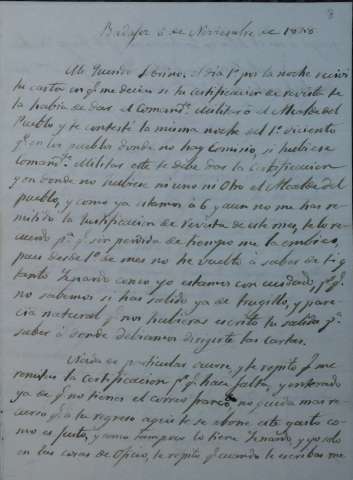 Badajoz 6 de Noviembre de 18
Mi querido el dia 1º por la noche recivi
tu carta en qe me decias si tu certificacion de revista te
la habia de dar el Comante Militar ó el Alcalde del
Pueblo y te contesté la misma noche del 1º diciendo
qe en los pueblos donde no hay Comisio, si hubiese
Comante Militar este te debe dar la Certificacion
y en donde no hubiese ni uno ni otro el Alcalde del
pueblo, y como ya estamos á 6 y aun no me has re-
mitido la Justificacion de revista de este mes, te lo re-
cuerdo pa qe sin perdida de tiempo me la embies,
pues desde 1º de mes no he vuelto á saber de ti y
tanto como yo estamos con cuidado, pr qe
no sabemos si has salido ya de Trugillo, y pare-
cia natural qe nos hubieras escrito tu salida pa
saber á donde debiamos dirigirte las cartas.
Nada de particular ocurre, y te repito qe me
remitas la certificacion pr qe hace falta, y enterado
ya de qe no tienes el correo franco, no queda mas re-
curso qe á tu regreso aqui te se abone este gasto co-
mo es justo, y como tampoco lo tiene y yo solo
en las cosas de Oficio, te repito qe cuando te escribas me